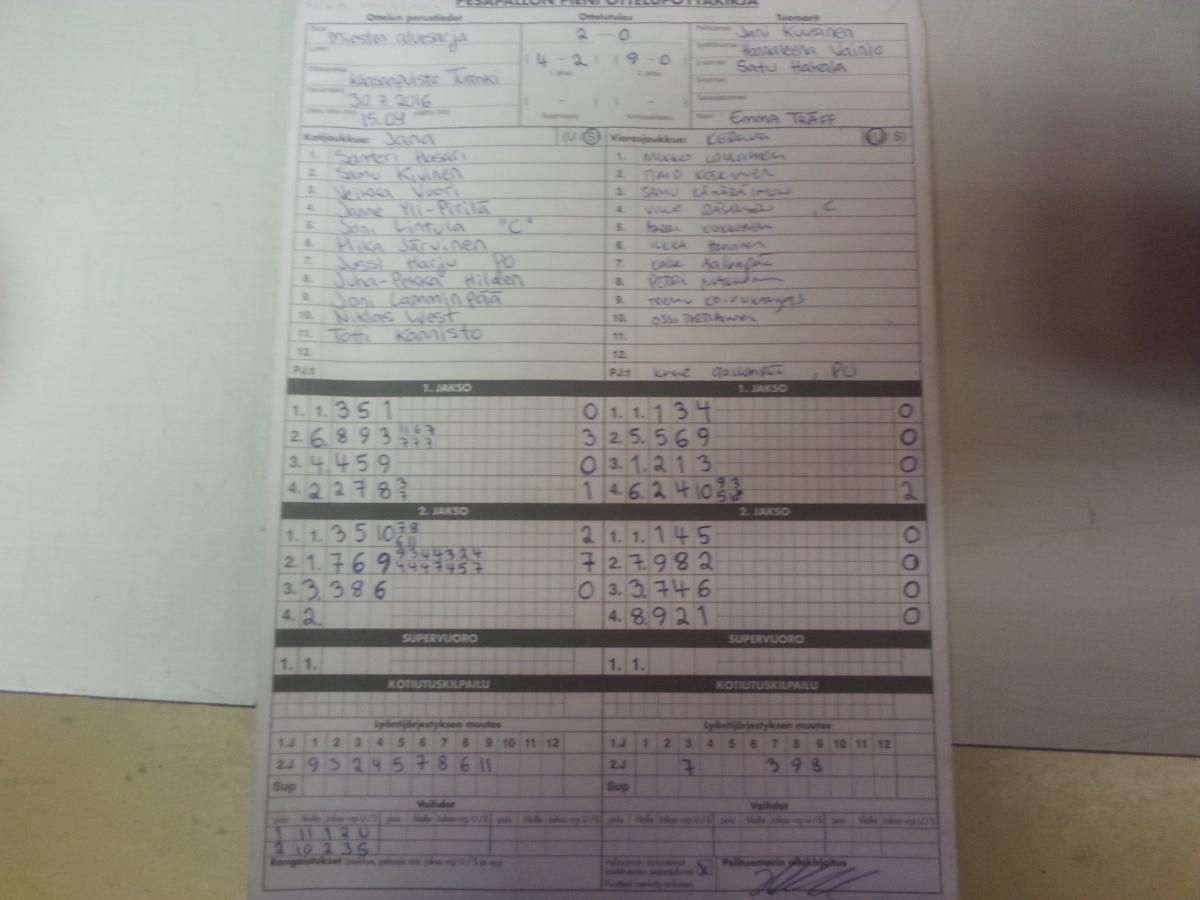 PESÄPALLON PIENI OTTELUPÖYTÄKIRJA
Ottelun perustiedot Ottelutulos Tuomarit
Miesten aluesarja 2 - 0 Jani Kuusinen
Hannaleena Vainio
(4 - 2) (9 - 0) Satu Hakala
Kansanpuisto Turenki
30.7.2016 ( - ) ( - )
15.04 Emma TRÄFF
Kotijoukkue: Jana (U S) Vierasjoukkue: KERAVA (U S)
1. Santeri Hasari 1. MIKKO
2. Samu Kivinen 2. TIMO KOSKINEN
3. Veikka Vuori 3. SAMU KÄMÄRÄINEN
4. Janne Yli-Pirilä 4. VILLE , C
5. Joni Lintula "C" 5.
6. Mika Järvinen 6. ILKKA
7. Jussi Harju PO 7. Kalle
8. Juha-Pekka Hilden 8. PETRI
9. Joni Lamminpää 9. TEEMU
10. Niklas West 10. OSSI
11. Totti Kannisto 11.
12. 12.
PJ:t PJ:t , PO
1. JAKSO 1. JAKSO
1. 1. 3 5 1 0 1. 1. 1 3 4 0
2. 6. 8 9 3 11 6 7 7 7 7 3 2. 5. 5 6 9 0
3. 4. 4 5 9 0 3. 1. 2 1 3 0
4. 2 2 7 8 3 7 1 4. 6. 2 4 10 9 3 5 10 2
2. JAKSO 2. JAKSO
1. 1. 3 5 10 7 8 6 11 2 1. 1. 1 4 5 0
2. 1. 7 6 9 9 3 4 4 3 2 4 4 4 4 7 4 5 7 7 2. 7. 9 8 2 0
3. 3. 3 8 6 0 3. 3. 7 4 6 0
4. 2. 4. 8. 9 2 1 0
SUPERVUORO SUPERVUORO
1. 1. 1. 1.
KOTIUTUSKILPAILU KOTIUTUSKILPAILU
Lyöntijärjestyksen muutos Lyöntijärjestyksen muutos
1.J 1 2 3 4 5 6 7 8 9 10 11 12 1.J 1 2 3 4 5 6 7 8 9 10 11 12
2.J 9 3 2 4 5 7 8 6 11 2.J 7 3 9 8
Sup Sup
Vaihdot Vaihdot
pois tilalle Jakso vrp U/S pois tilalle Jakso vrp U/S pois tilalle Jakso vrp U/S pois tilalle Jakso vrp U/S
1 11 1 2 U
2 10 2 3 S
Rangaistukset Pelituomarin allekirjoitus